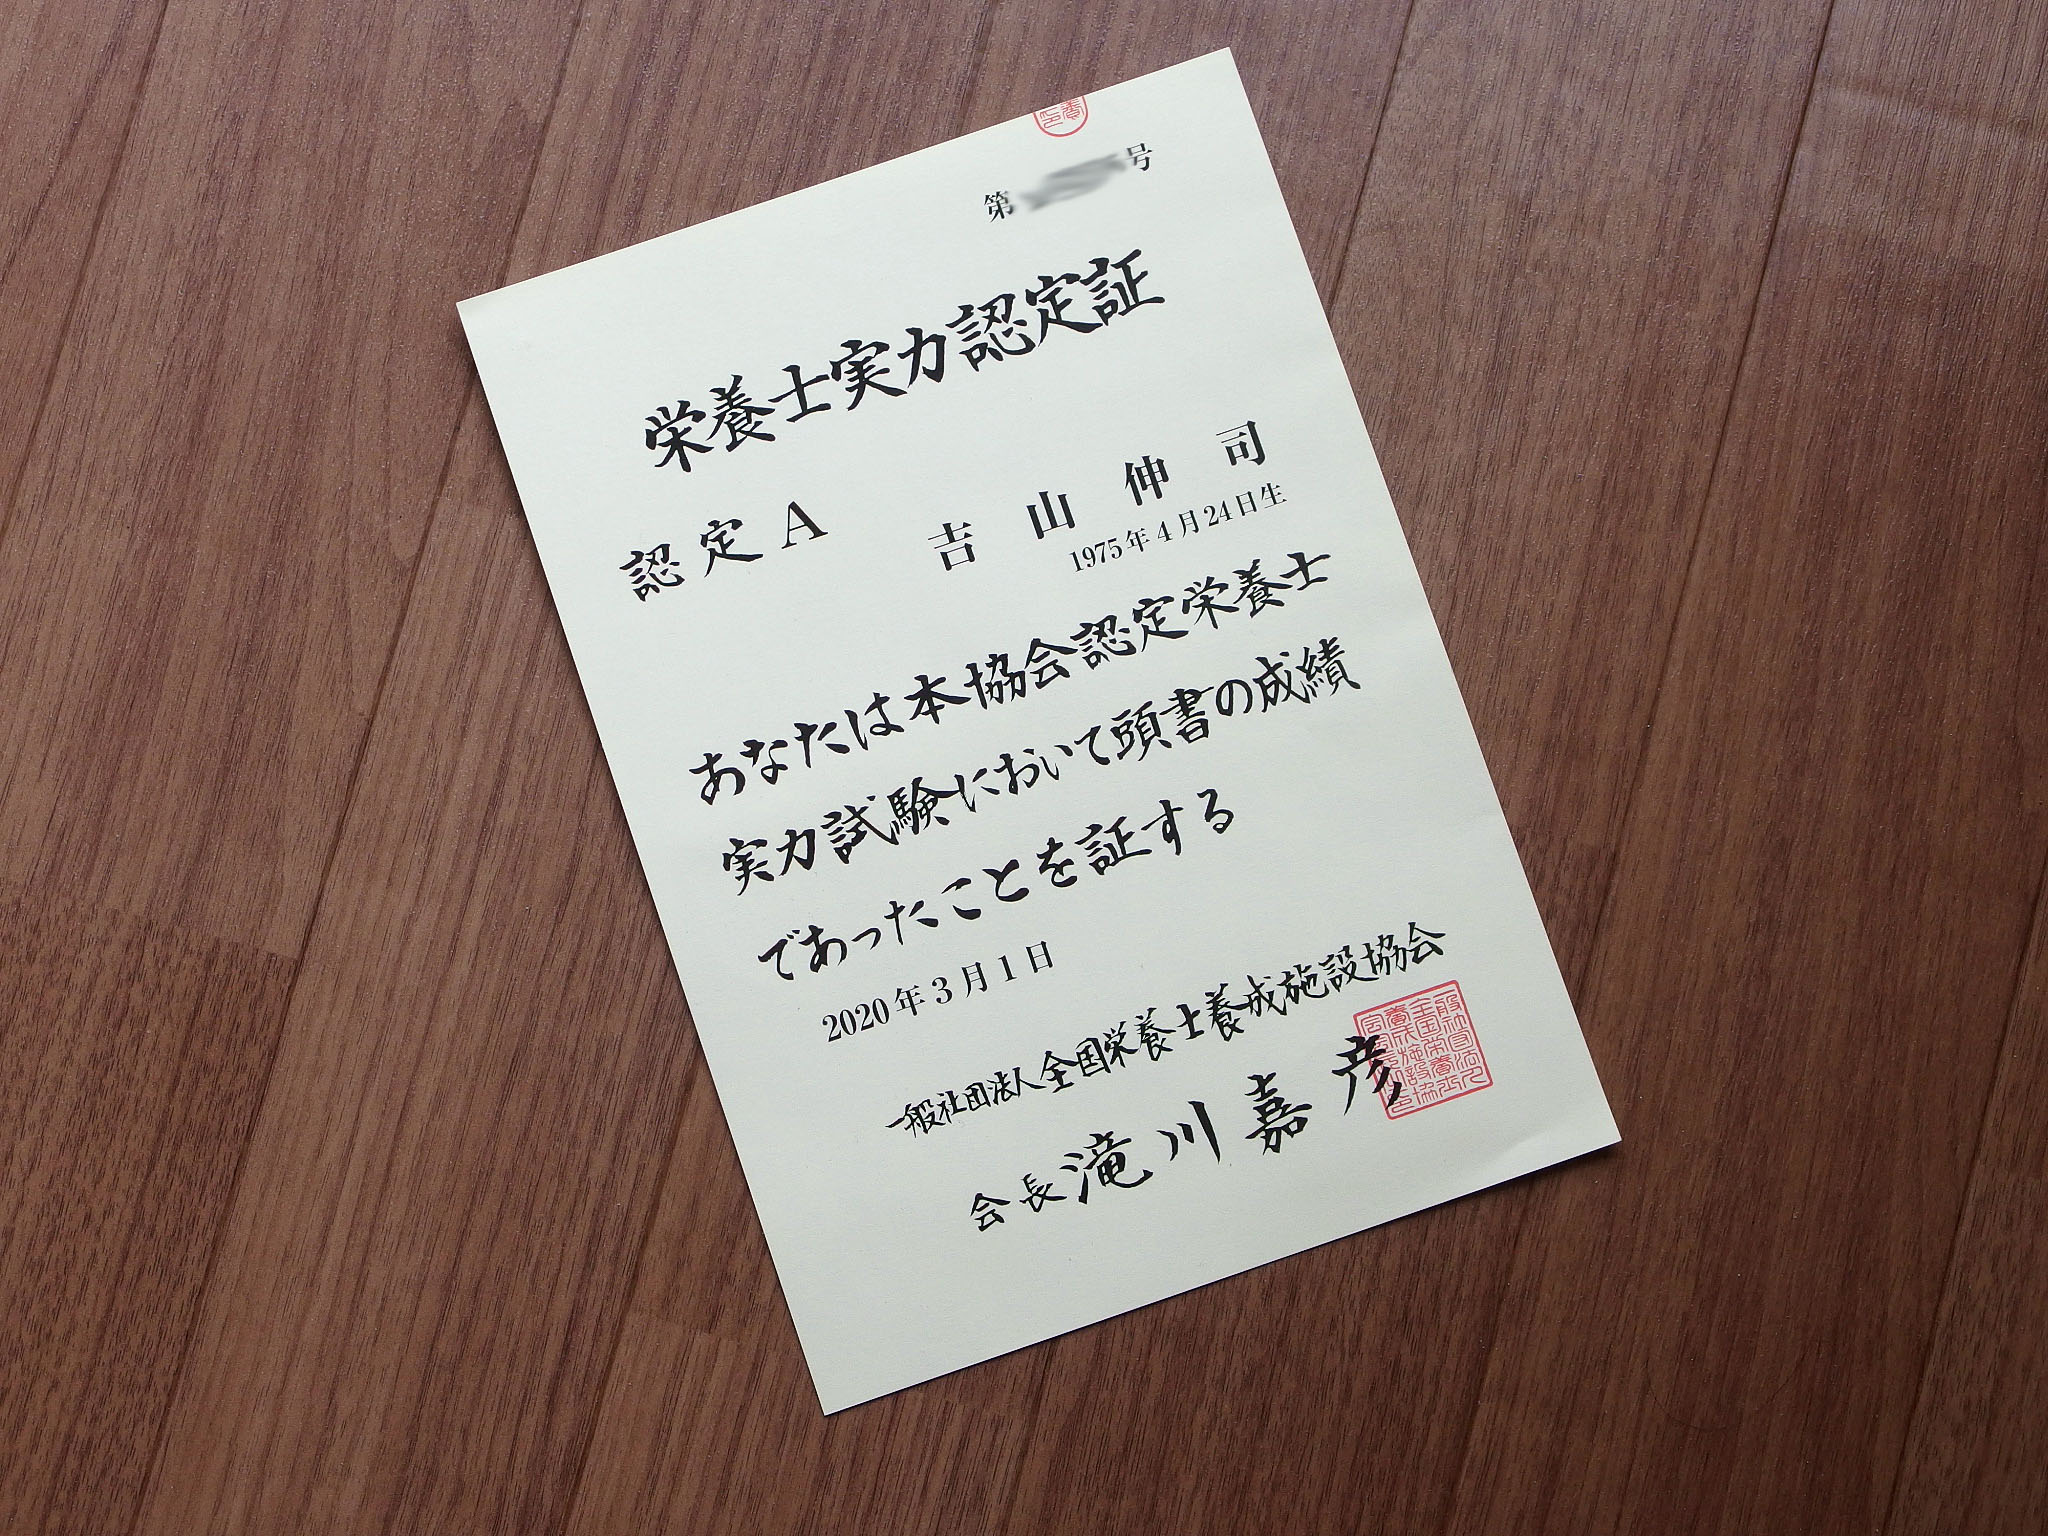 第 号
栄養士実力認定証
認定A 吉山伸司
1975年4月24日生
あなたは本協会認定栄養士
実力試験において頭書の成績
であったことを証する
2020年3月1日
一般社団法人全国栄養士養成施設協会
会長 滝川嘉彦